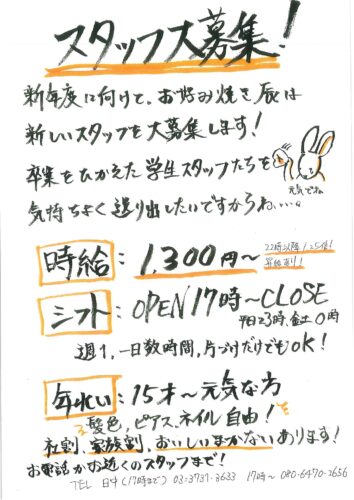 スタッフ大募集!
新年度に向けて、お好み焼き辰は
新しいスタッフを大募集します!
卒業をひかえた学生スタッフたちを
気持ちよく送り出したいですからね、、、。
元気でね
時給:1,300円〜
22時以降1.25倍!
昇給有り!
シフト:OPEN17時〜CLOSE
平日23時、金土0時
週1、一日数時間、片づけだけでもOK!
年れい:15才〜元気な方
髪色、ピアス、ネイル自由!
社割、家族割、おいしいまかないあります!
お電話かお近くのスタッフまで!
TEL 日中(17時まで) 03-3731-3633 17時〜 080-6470-2656